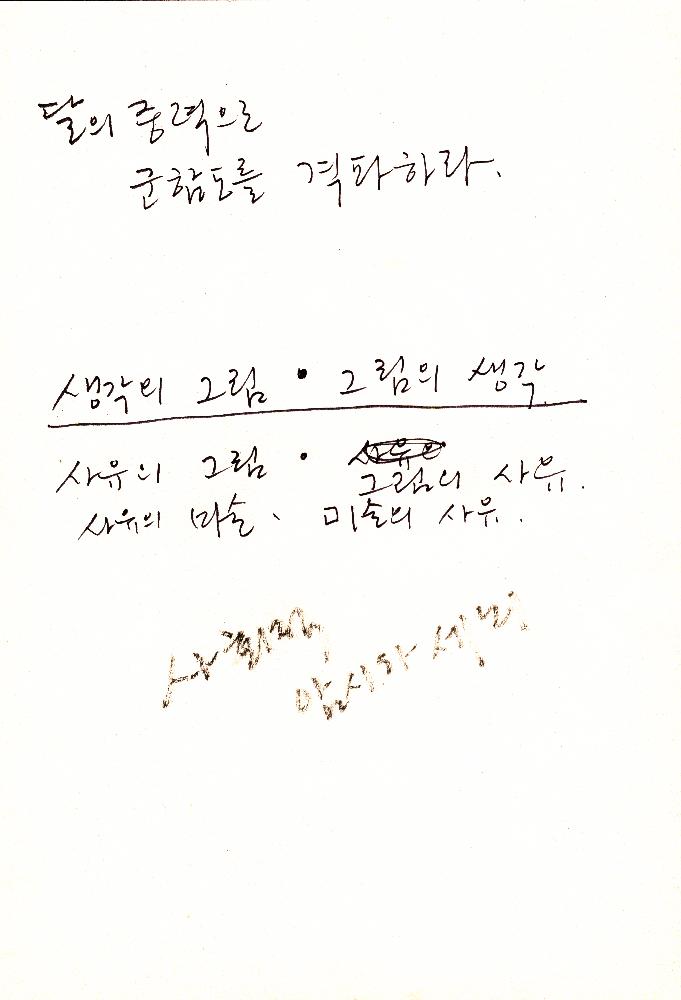 달의 중력으로
군함도를 격파하라.
생각의 그림 • 그림의 생각
사유의 그림 •
그림의 사유.
사유의 미술、 미술의 사유.
사회적
암시와